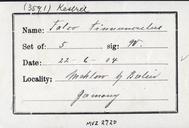 (3541) Kestrel
Name: Falco Tinnunculus
Set of: 5 sig: 90.
Date: 22-6-04
Locality: by Berlin
Germany
MVZ 2720